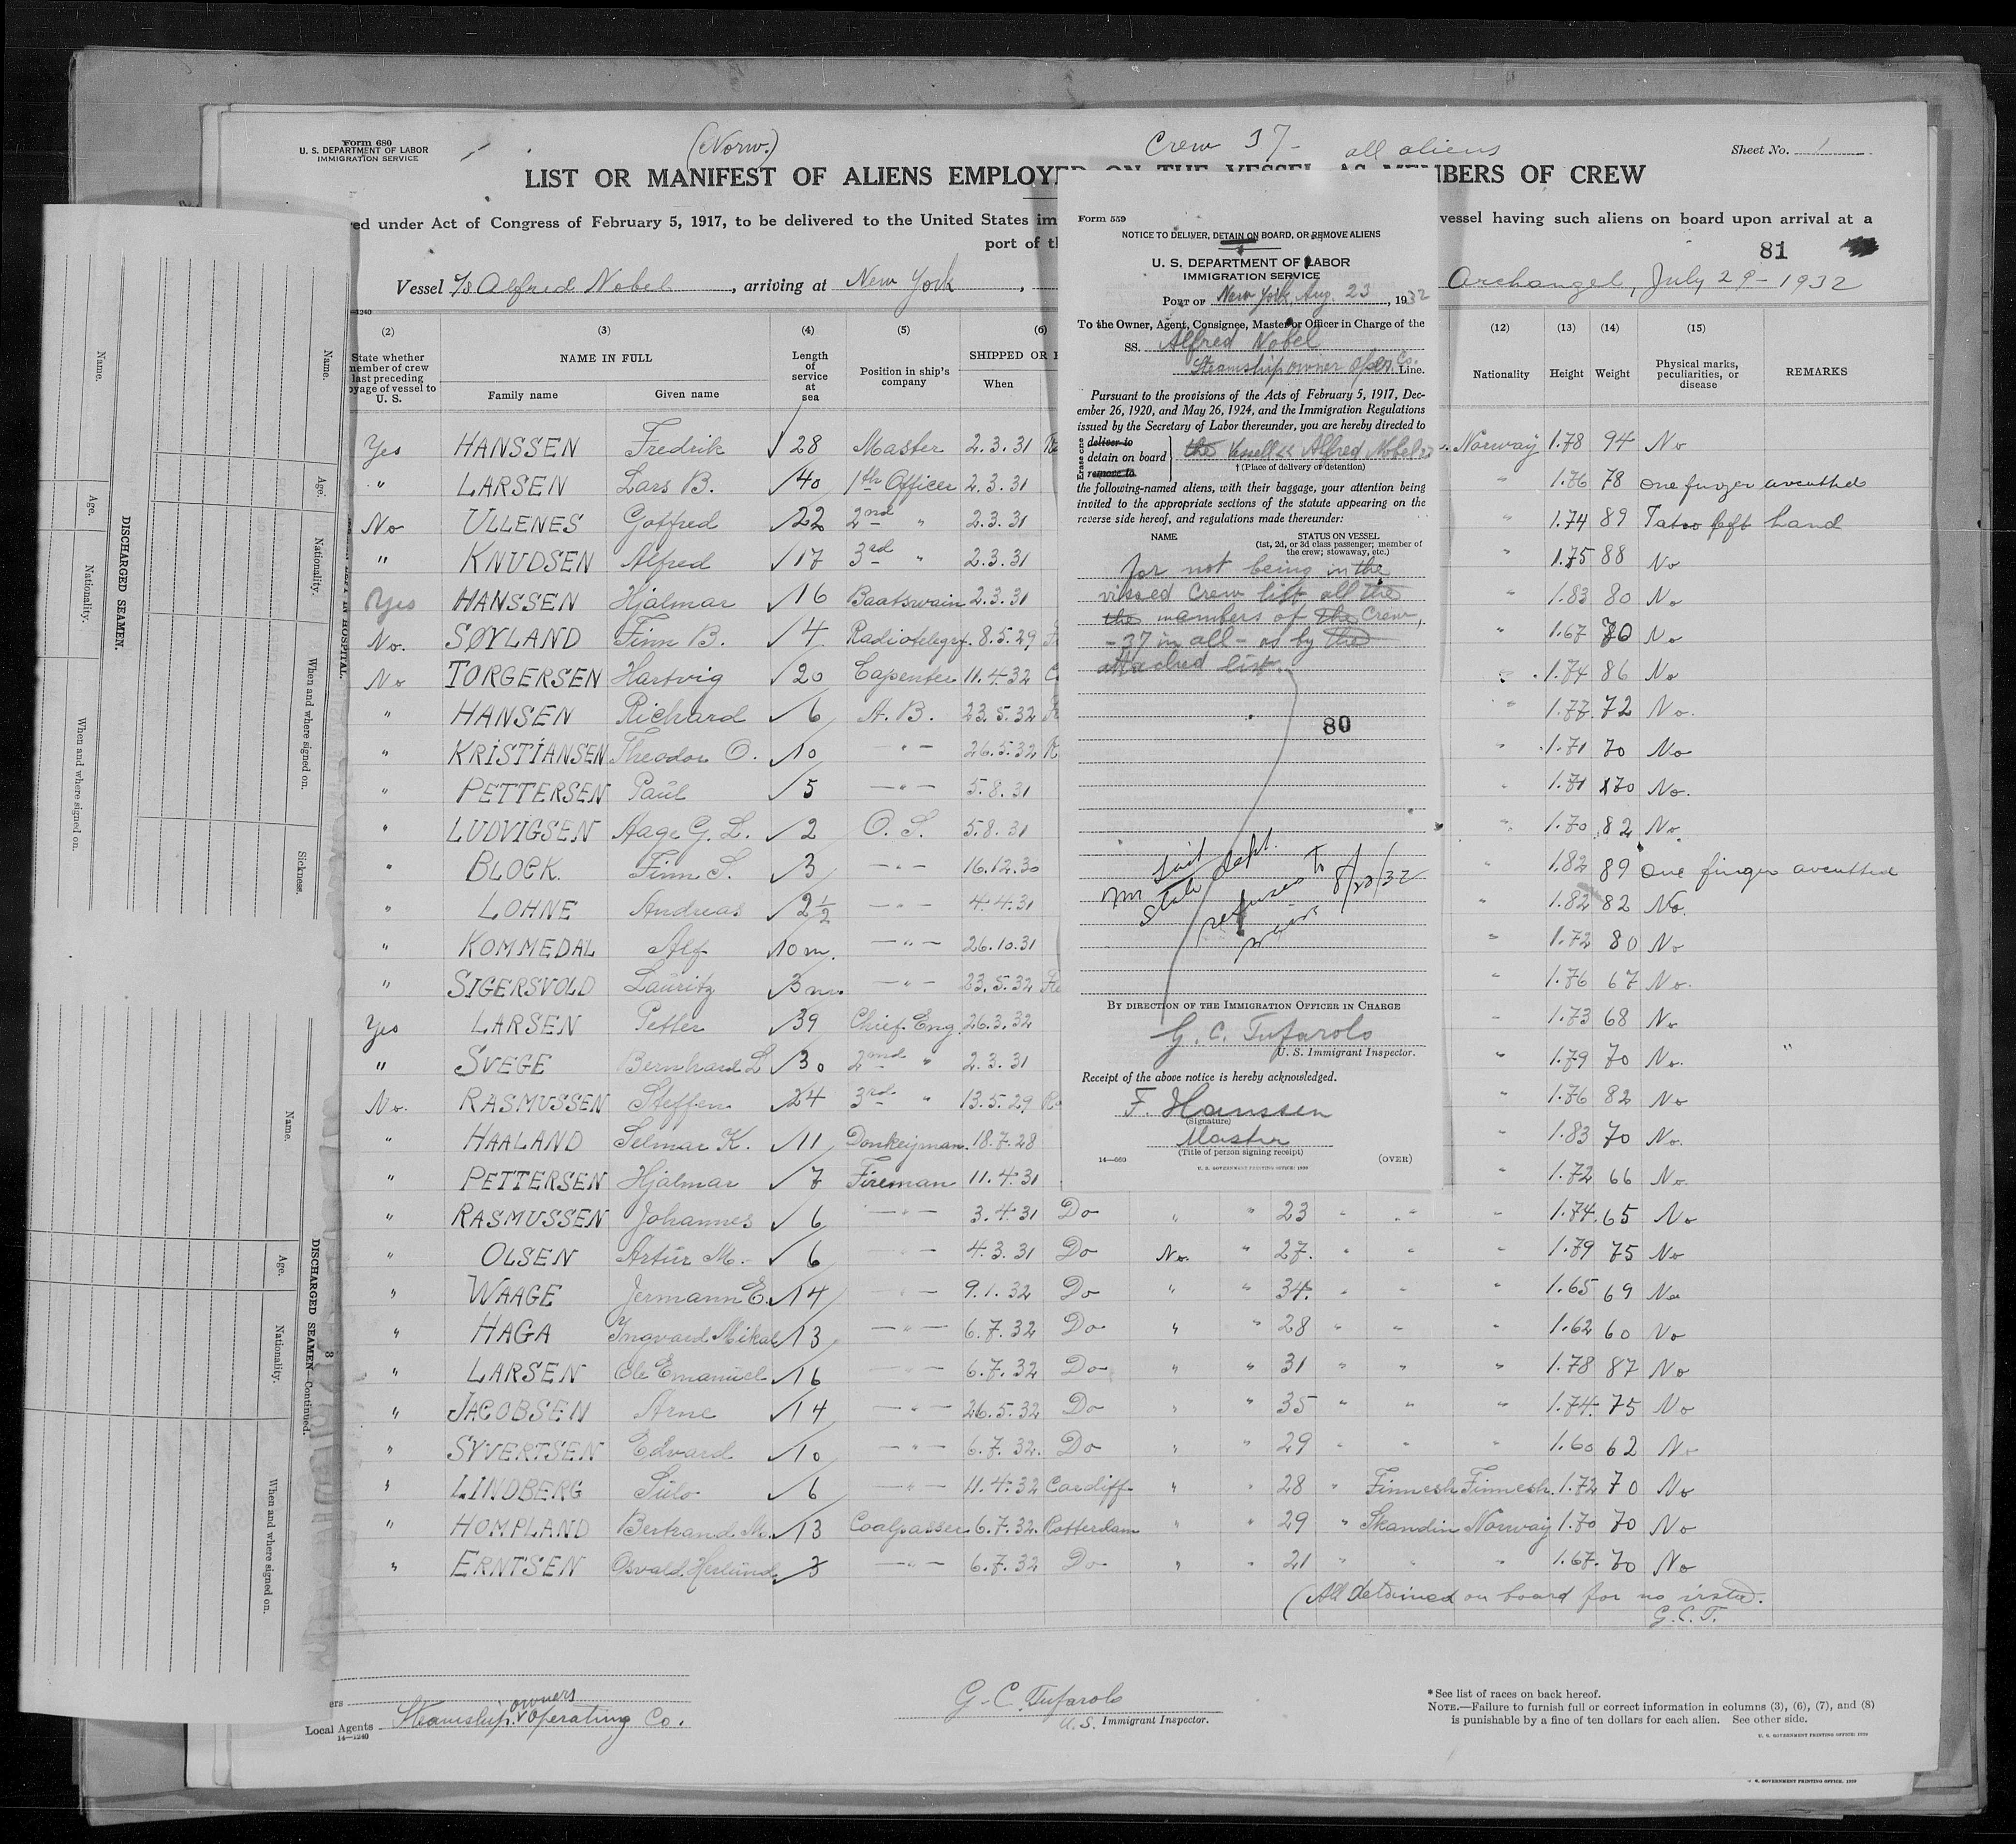 Form 680
U. S. DEPARTMENT OF LABOR
IMMIGRATION SERVICE
(Norw.)
Crew 37 - all aliens
Sheet No. 1
LIST OR MANIFEST OF ALIENS EMPLOYED ON THE VESSEL AS MEMBERS OF CREW
ed under Act of Congress of February 5, 1917, to be delivered to the United States im
vessel having such aliens on board upon arrival at a
port of th
81
Vessel S/S Alfred Nobel, arriving at New York,
Archangel, July 29 - 1932
(2) (3) (4) (5) (6) (12) (13) (14) (15)
State whether member of crew last preceding voyage of vessel to U. S.
NAME IN FULL
Family name Given name
Length of service at sea
Position in ship's company
SHIPPED OR
When
Nationality Height Weight
Physical marks, peculiarities, or disease
REMARKS
Yes HANSSEN Fredrik √ 28 Master 2.3.31 Norway 1.78 94 No
" LARSEN Lars B. √ 40 1th Officer 2.3.31 " 1.76 78 One finger avcutted
No ULLENES Gotfred √ 22 2nd " 2.3.31 " 1.74 89 Tatoo left hand
" KNUDSEN Alfred √ 17 3rd " 2.3.31 " 1.75 88 No
Yes HANSSEN Hjalmar √ 16 Baatswain 2.3.31 " 1.83 80 No
No. SØYLAND Finn B. √ 4 Radiotelegrf. 8.5.29 " 1.67 70 No
No TORGERSEN Hartvig √ 20 Capenter 11.4.32 C " 1.74 86 No
" HANSEN Richard √ 6 A. B. 23.5.32 " 1.77 72 No.
" KRISTIANSEN Theodor O. √ 10 — " — 26.5.32 R " 1.71 70 No
" PETTERSEN Paul √ 5 — " — 5.8.31 " 1.71 70 No.
" LUDVIGSEN Aage G. L. √ 2 O. S. 5.8.31 " 1.70 82 No.
" BLOCK. Finn S. √ 3 — " — 16.12.30 " 1.82 89 One finger avcutted
" LOHNE Andreas √ 2½ — " — 4.4.31 " 1.82 82 No.
" KOMMEDAL Alf √ 10 m. — " — 26.10.31 " 1.72 80 No
" SIGERSVOLD Lauritz √ 3 m. — " — 23.5.32 " 1.76 67 No.
Yes LARSEN Petter √ 39 Chief. Eng. 26.3.32 " 1.73 68 No
" SVEGE Bernhard L √ 30 2nd " 2.3.31 " 1.79 70 No. "
No. RASMUSSEN Steffen √ 24 3rd " 13.5.29 " 1.76 82 No
" HAALAND Selmar K. √ 11 Donkeyman. 18.7.28 " 1.83 70 No.
" PETTERSEN Hjalmar √ 7 Fireman 11.4.31 " 1.72 66 No.
" RASMUSSEN Johannes √ 6 — " — 3.4.31 Do " " 23 " " " 1.74 65 No
" OLSEN Artur M. √ 6 " — 4.3.31 Do No. " 27. " " " 1.79 75 No
" WAAGE Jermann E. √ 14 — " — 9.1.32 Do " " 34. " " " 1.65 69 No
" HAGA Ingvard Mikal √ 13 — " — 6.7.32 Do " " 28 " " " 1.62 60 No
" LARSEN Ole Emanuel √ 16 — " — 6.7.32 Do " " 31 " " " 1.78 87 No
" JACOBSEN Arne √ 14 — " — 26.5.32 Do " " 35 " " " 1.74. 75 No
" SYVERTSEN Edvard √ 10 — " — 6.7.32. Do " " 29 " " " 1.60 62 No
" LINDBERG Sulo √ 6 — " — 11.4.32 Cardiff " " 28 " Finnesh Finnesh. 1.72 70 No
" HOMPLAND Bertrand M. √ 13 Coalpasser 6.7.32. Rotterdam " " 29 " Skandin Norway 1.70 70 No
" ERNTSEN Osvald √ 3 — " — 6.7.32 Do " " 21 " " " 1.67. 70 No
(All detained on board for no visa.
G.C.T.
ers
Local Agents Steamship owners Operating Co.
14—1240
G. C. Tufarolo
U. S. Immigrant Inspector.
* See list of races on back hereof.
NOTE.—Failure to furnish full or correct information in columns (3), (6), (7), and (8)
is punishable by a fine of ten dollars for each alien. See other side.
U. S. GOVERNMENT PRINTING OFFICE: 1930
U. S. GOVERNMENT PRINTING OFFICE: 1930
Form 559
NOTICE TO DELIVER, DETAIN ON BOARD, OR REMOVE ALIENS
U. S. DEPARTMENT OF LABOR
IMMIGRATION SERVICE
PORT OF New York, Aug. 23, 1932
To the Owner, Agent, Consignee, Master or Officer in Charge of the
SS. Alfred Nobel
Steamship owner Oper. Co. Line.
Pursuant to the provisions of the Acts of February 5, 1917, December 26, 1920, and May 26, 1924, and the Immigration Regulations
issued by the Secretary of Labor thereunder, you are hereby directed to
Erase one
deliver to
detain on board
remove to
the Vessell << Alfred Nobel >>
† (Place of delivery or detention)
the following-named aliens, with their baggage, your attention being
invited to the appropriate sections of the statute appearing on the
reverse side hereof, and regulations made thereunder:
NAME
STATUS ON VESSEL
(1st, 2d, or 3d class passenger; member of the crew; stowaway, etc.)
for not being in the
vissed Crew list all the
the members of the Crew,
- 37 in all - as by the
attached list.
80
State dept.
refuses to
8/23/32
BY DIRECTION OF THE IMMIGRATION OFFICER IN CHARGE
G. C. Tufarolo
U. S. Immigrant Inspector.
Receipt of the above notice is hereby acknowledged.
F. Hanssen
(Signature)
Master
(Title of person signing receipt)
14—660
U. S. GOVERNMENT PRINTING OFFICE: 1930
(OVER)
DISCHARGED SEAMEN.
Name. Age. Nationality. When and where signed on.
IN HOSPITAL.
Name. Age. Nationality. When and where signed on. Sickness.
DISCHARGED SEAMEN—Continued.
Name. Age. Nationality. When and where signed on.
3